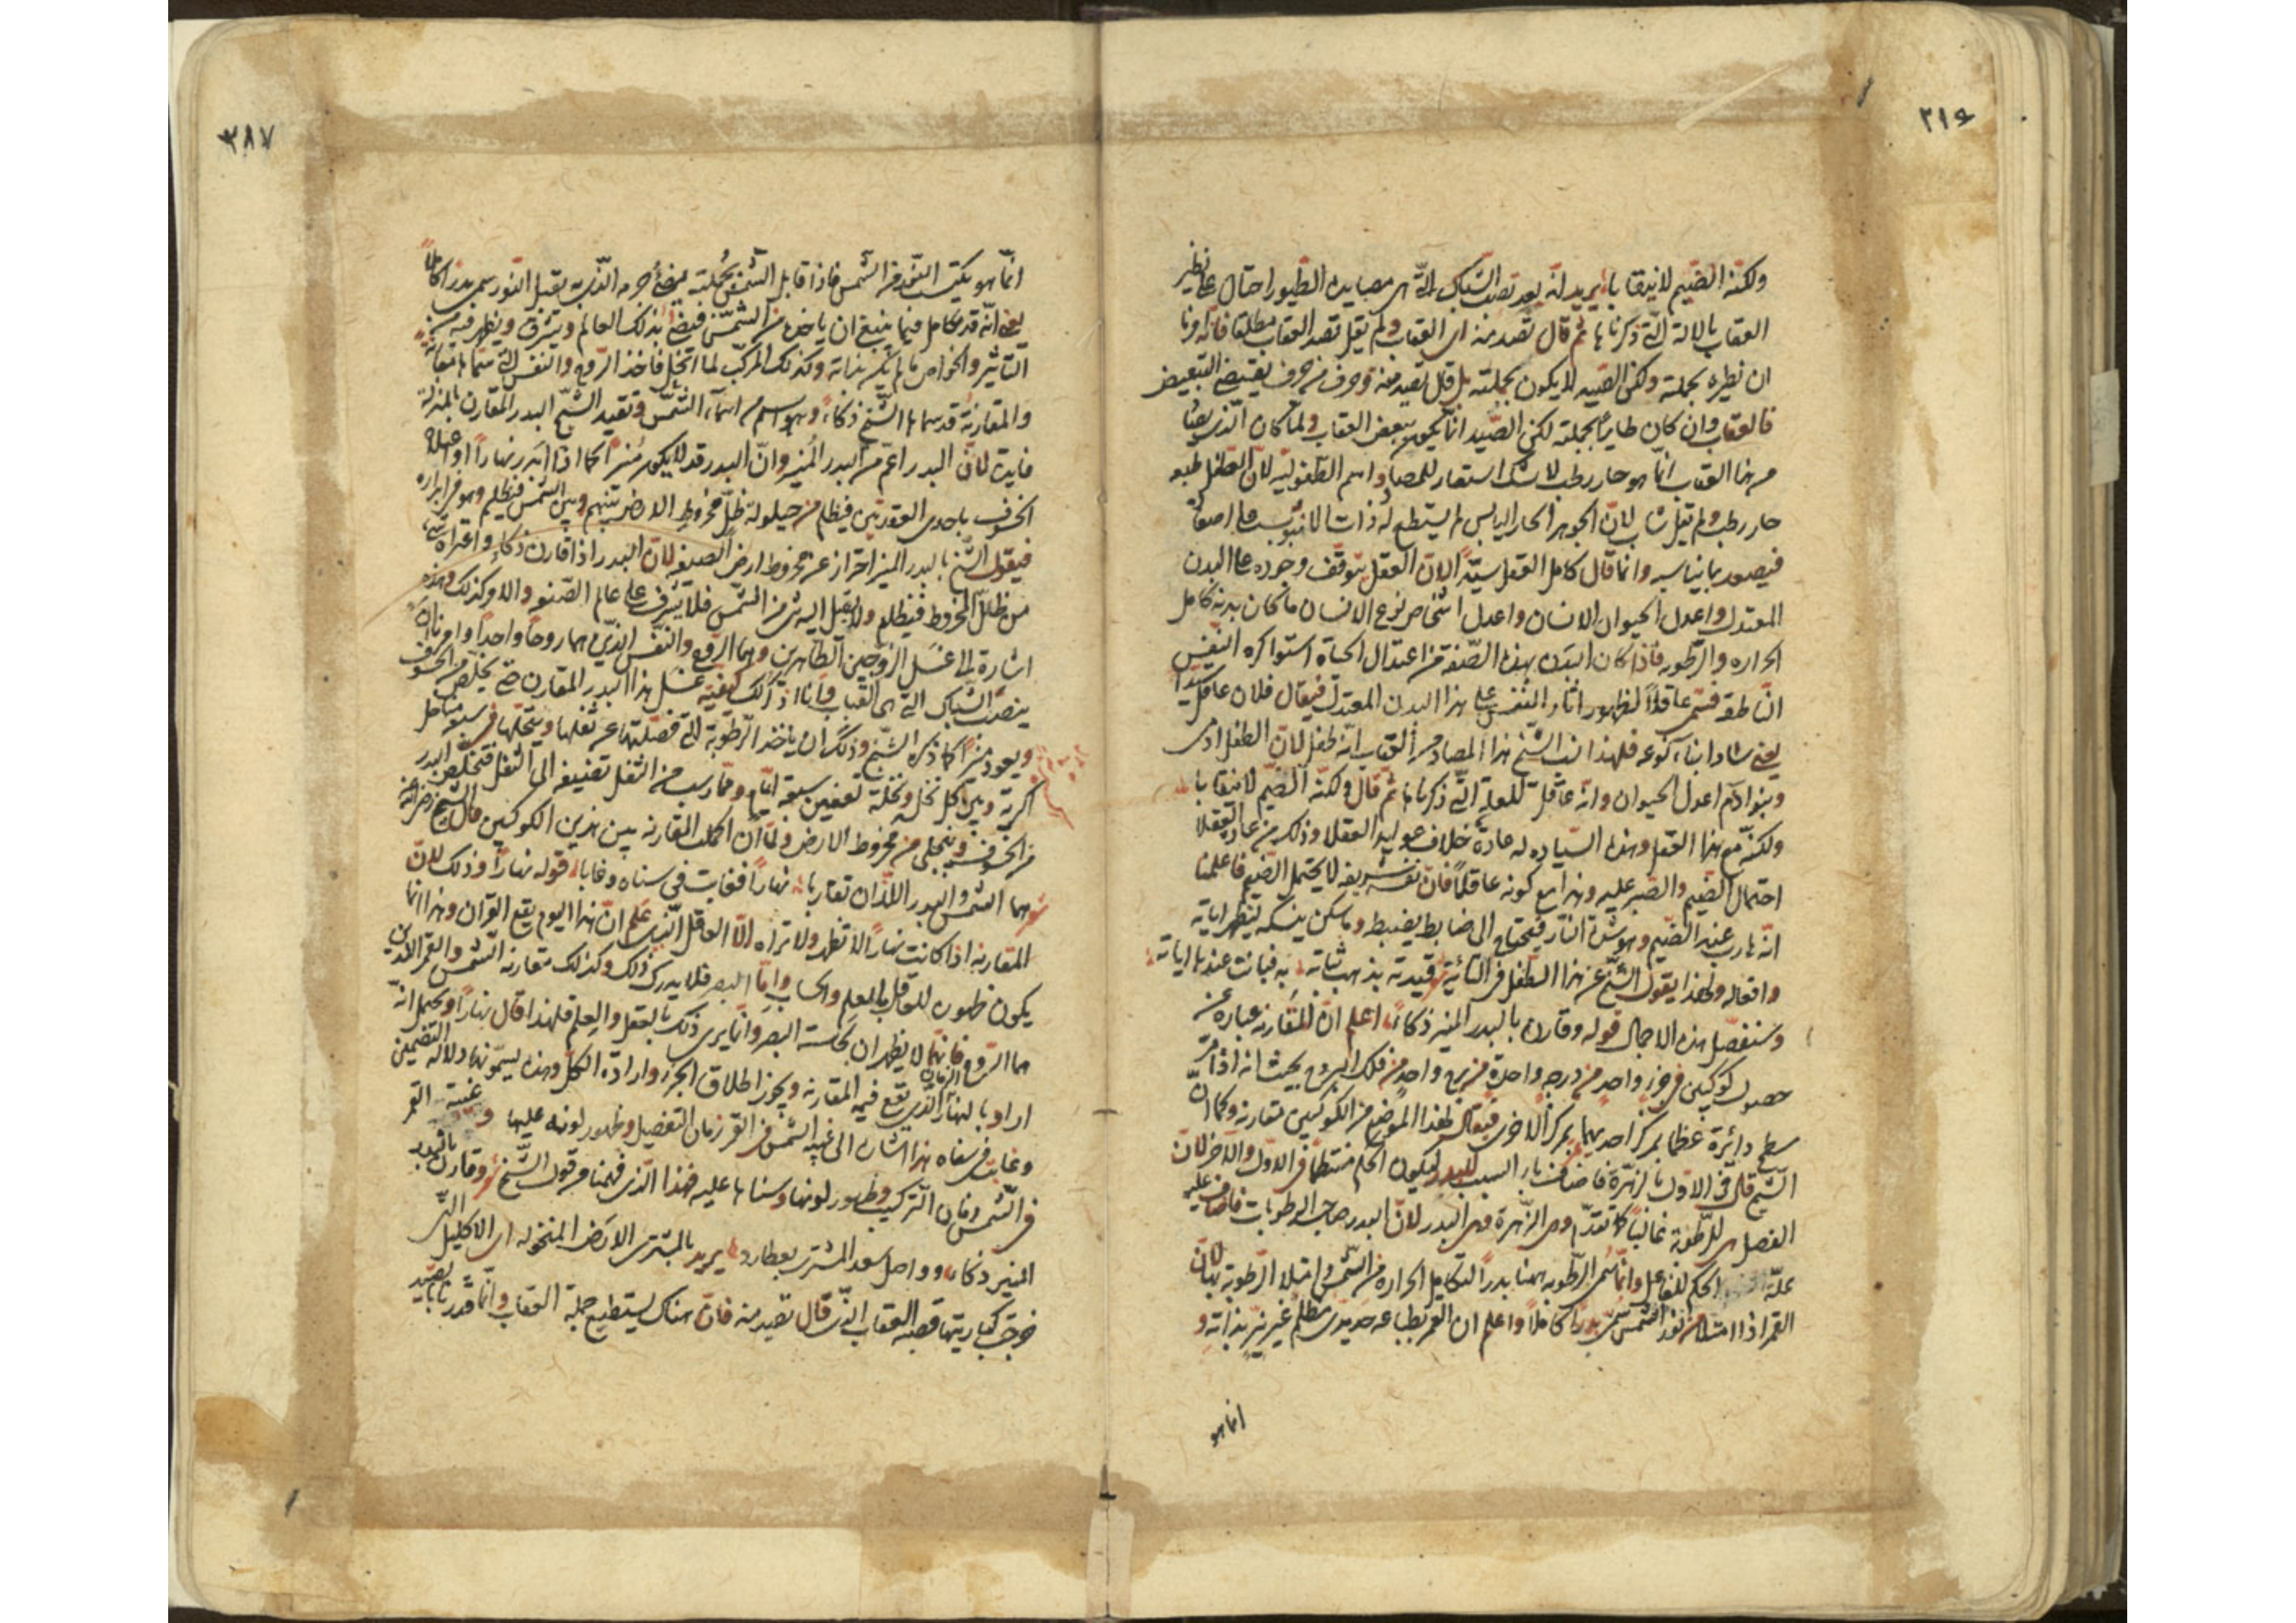 ٢١٩
ولكنّه الضيم لا يرتقا با يريد انّه بعد نصب الشباك الّتي هي مصايدة الطيور احتال على نظير
العقاب بالالة الّتي ذكرناها ثم قال تصد منه اى العقاب ولم يقل تصد العقاب مطلقا فانّه اونا
ان نظيره بجملته ولكن الصيد لا يكون بجملته بل قال تصيد منه وحرف من حرف يقتضى التبعيض
فالعقاب وان كان طايرًا بجملته لكن الصيد انّما يكون ببعض العقاب ولما كان الّذى
من هذا العقاب انّما هو حار رطب لا شك استعار للمصاد اسم الطفوليّة لانّ الطفل طبعه
حار رطب ولم يقل شاب لانّ الجوهر الحار اليابس لم يستطع له ذات الانبوب على اصعاد
فيصعد بما يناسبه وانما قال كامل العقل سيدًا لانّ العقل يتوقّف وجوده على البدن
المعتدل واعدل الحيوان الانسان واعدل اشخاص نوع الانسان ما كان بدنه كامل
الحرارة والرطوبة فاذا كان البدن بهذه الصّفة من اعتدال الحياة استواكره النفس
النّاطقة فسمّى عاقلاً لظهور اثار النفس على هذا البدن المعتدل فيقال فلان عاقل سيّدًا
يعنى ساد ابناء نوعه فلهذا نسب الشيخ هذا المصاد من العقاب انّه طفل لانّ الطفل ادمى
وبنوا آدم اعدل الحيوان وانّه عاقل للعلة الّتي ذكرناها ثم قال ولكنّه الضيم لا يرتقا با
ولكنّه مع هذا العقل وهذه السّيادة له عادة خلاف عوايد العقلا وذلك من عادة العقلا
احتمال الضيم والصبر عليه وهذا مع كونه عاقلاً فانّ نفسه شريفة لا يحتمل الضيم فاعلمنا
انّه هارب عند الضيم وهو شدّة النّار فيحتاج الى ضابط يضبطه وماسكن يمسكه ليظهر اياته
وافعاله ولهذا يقول الشيخ عن هذا الطفل فى التّائية قيدته بذهب ثباته به فبانت عندها اياته
وسنفصّل هذه الاجمال قوله وقارن بالبدر المنير ذكاءً اعلم انّ المقارنة عبارة عن
حصول كوكبين فى جزء واحد من درجة واحدة من برج واحد من فلك البروج بحيث انه اذا مرّ
سطح دائرة عظما بمركز احديهما يمر بمركز الاخرى فيقال لهذا الموضع من الكوكبين مقارنة وكما انّ
الشيخ قال فى الاوّل بالزهرة فاضاف بار السبب للبدر ليكون الحكم منتظمًا فى الاوّل والآخر لانّ
الفصل هى للرطوبة غالبًا كما تقدّم وهى الزّهرة وهى البدر لانّ البدر صاحب الرطوبات فاضاف عليه
علّة الحكم للفاعل وانّما سمّى الرّطوبة ههنا بدرًا لتكامل الحرارة من الشمس وامتلاء الرّطوبة بها لانّ
القمر اذا امتلا من نور الشمس سمّى بدرًا كاملاً واعلم ان القمر بطباعه جسديد مظلم غير نيّر بذاته و
انما هو
٢٨٧
انّما هو يكتسب النّور من الشمس فاذا قابل الشمس بجملته يضئ جرمه الّذى به يقبل النّور سمى بدرًا كاملاً
يعنى انّه قد تكامل فيما ينبغى ان ياخذه من الشمس فيضئ بذلك العالم ويشرق ويظهر فيه من
التاثير والخواص ما لم يكن بذاته وكذلك المركّب لما انحلّ فاخذ الرّوح والنفس
والمقارنة قد سماها الشيخ ذكاءً وهو اسم من اسماء الشمس وتقييد الشيخ البدر المقارن بالمنير له
فايدة لانّ البدر اعم من البدر المنير وانّ البدر قد لا يكون منيرًا كما اذا ابدر نهارًا او اعتراه
الخسوف باحدى العقدتين فيظلم من حيلولة ظلّ مخروط الارض بينهم وبين الشمس فيظلم وهو فى ابداره
فيقول الشيخ بالبدر المنير احترازًا عن مخروط ارض الصنعة لانّ البدر اذا قارن ذكاءً واعتراه شئ
من ظلّ المخروط فيظلم ولا يقبل اليه شئ من الشمس فلا يشرف على عالم الصّنعة والا وكذلك وهذه
اشارة الى غسل الزوجين الطاهرين وهما الرّوح والنفس الذين هما روحًا واحدًا وامرنا ان
ينصب الشباك الّتي هى القباب وانا اذكر لك كيفيّة غسل هذا البدر المقارن حتى يخلص من الخسوف
ويعود منيرًا كما ذكره الشيخ وذلك ان ياخذ الرّطوبة الّتي فصلتها عن ثفلها وينخلها فى سبعة مناخل
اكرية وبين كل نخل ونخلة تعفين سبعة ايام وممّا رسب من الثفل تضيفه الى الثفل فتخلّص البدر
من الخسوف وينجلى من مخروط الارض ولمّا ان اكملت المقارنة بين هذين الكوكبين قال الشيخ رضى الله عنه
هما الشمس والبدر اللّذان تقاربا نهارًا فغابت فى سناه وغابا قوله نهارًا وذلك لانّ
المقارنة اذا كانت نهارًا لا تظهر ولا تراه الّا العاقل الّذى علم انّ هذا اليوم يقع القران وهذا انما
يكون ظهوره للعاقل بالعلم والحساب وامّا البصر فلا يدرك ذلك وكذلك مقارنة الشمس والقمر اللّذين
هما الرّوح فانّهما لا يظهران بحاسة البصر وانّما يرى ذلك بالعقل والعلم فلهذا قال نهارًا ويحتمل انّه
اراد بالنهار الزمان الّذى تقع فيه المقارنة ويجوز اطلاق الجزء وارادة الكلّ وهذه يسمّونها دلالة التضمين
وغابت فى سناه هذا اشارة الى غيبة الشمس فى القمر زمان التفصيل وظهور لونه عليها و غيبة القمر
فى الشمس زمان التركيب وظهور لونها وسناها عليه فهذا الّذى فهمنا من قول الشيخ وقارن بالبدر
المنير ذكاءً وواصل سعد المشترى بعطارد يريد بالمشترى الارض المنخولة اى الاكليل الّتى
خرجت كباريتها قصبة العقاب الّذى قال تصيد منه فانّ هناك يستطيع جملة العقاب وانّما قدرنا بصيد